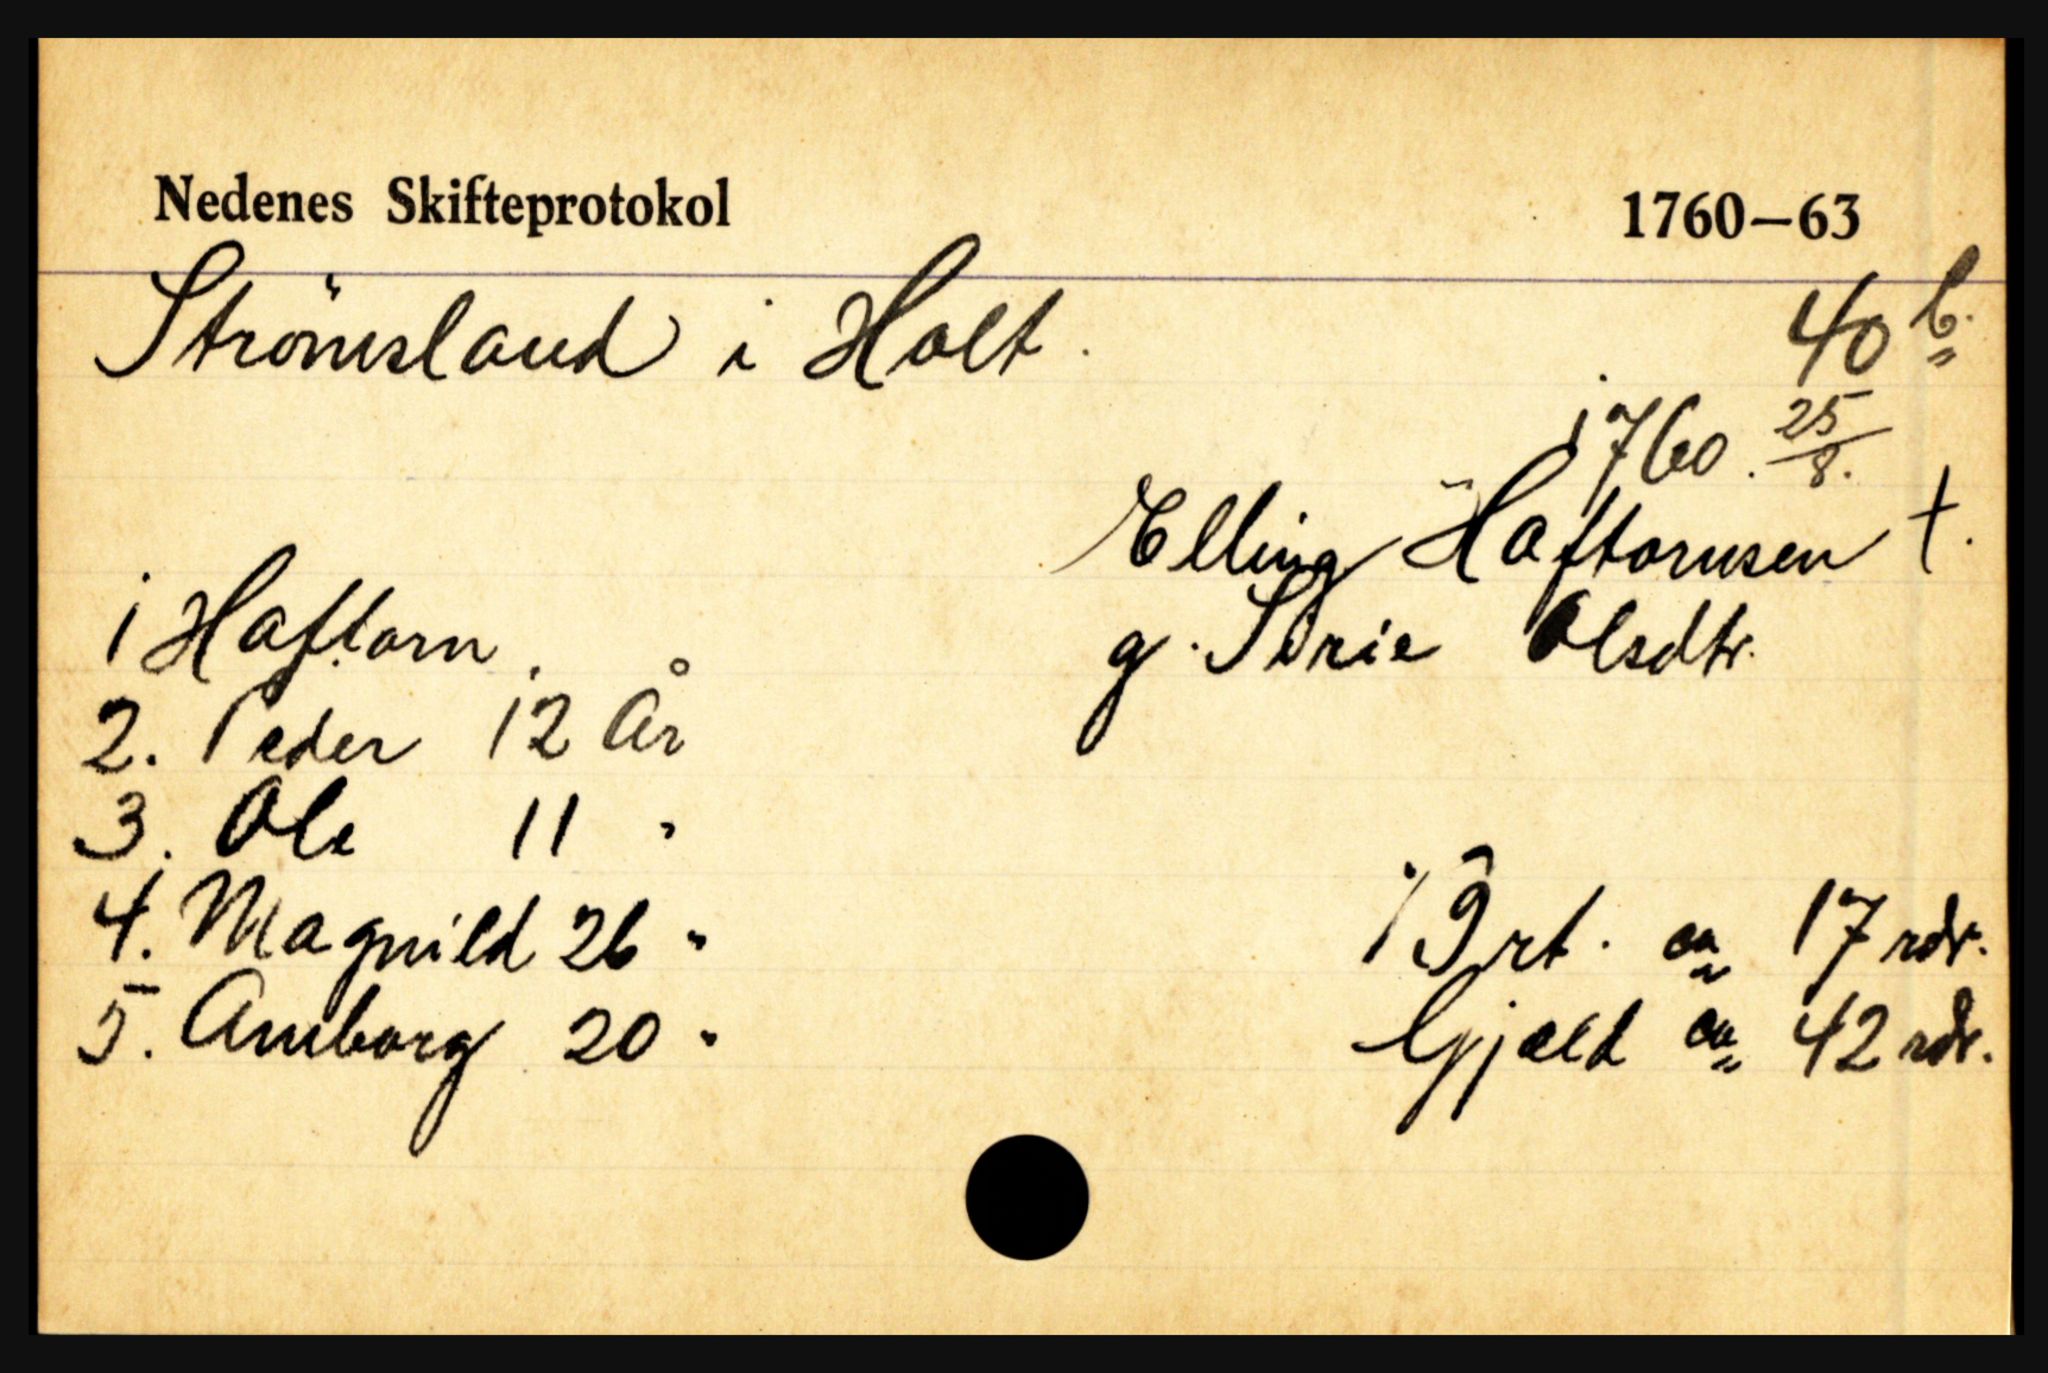 Nedenes Skifteprotokol 1760—63
Strömsland i Holt.
40 b.
1760. 25/8.
Elling Haftornsen †.
g. Sirie Olsdtr.
1 Haftorn.
2. Peder 12 År
3. Ole 11 "
4. Magnild 26 "
5. Amborg 20 "
Brt. ca 17 rdr.
Gjæld ca 42 rdr.